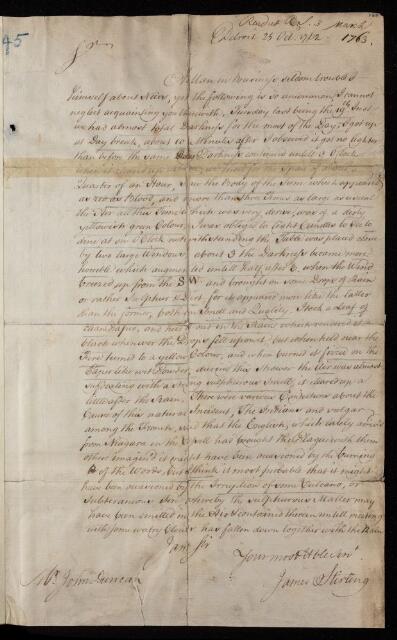 45
Read 3 March
Detroit 25 Oct. 1762
1763
Sir
A Man in Business seldom troubles
himself about News, yet the following is so uncommon, I cannot
neglect acquainting you therewith. Tuesday last being the 19th Inst.
we had almost total Darkness for the most of the Day, I got up
at Day break, about 10 Minutes after I observed it got no lighter
than before the same Darkness continued untill 9 O'Clock
when it cleared up a little, we then for the space of about a
Quarter of an Hour, saw the Body of the Sun which appeared
as red as Blood, and more than three times as large as usual
the Air all this Time which was very dense, was of a dirty
yellowish green Colour, I was obliged to light Candles to see to
dine at one O'Clock notwithstanding the Table was placed close
by two large Windows, about 3 the Darkness became more
horrible which augmented untill half after 3, when the Wind
breezed up from the SW and brought on some Drops of Rain
or rather Sulphur & Dirt for it appeared more like the latter
than the former, both in Smell and Quality. I took a Leaf of
clean Paper, and held it out in the Rain which rendered it
black whenever the Drops fell upon it, but when held near the
Fire turned to a yellow Colour, and when burned it fizzed on the
Paper like wet Powder, during this Shower the Air was almost
suffocating with a strong sulphurous Smell, it cleared up a
little after the Rain. There were various Conjectures about the
Cause of this natural Incident, the Indians and vulgar
among the French said that the English which lately arrived
from Niagara in the Vessell had brought the Plague with them
others imagined it might have been occasioned by the burning
of the Woods, but I think it most probable that it might
have been occasioned by the Irruption of some Vulcano, or
Subterraneous Fire whereby the sulphurous Matter may
have been emitted in the Air & contained therein untill meeting
with some watry Clouds has fallen down together with the Rain
I am Sir
Your most H'ble Serv'
James Sterling
Mr John Duncan